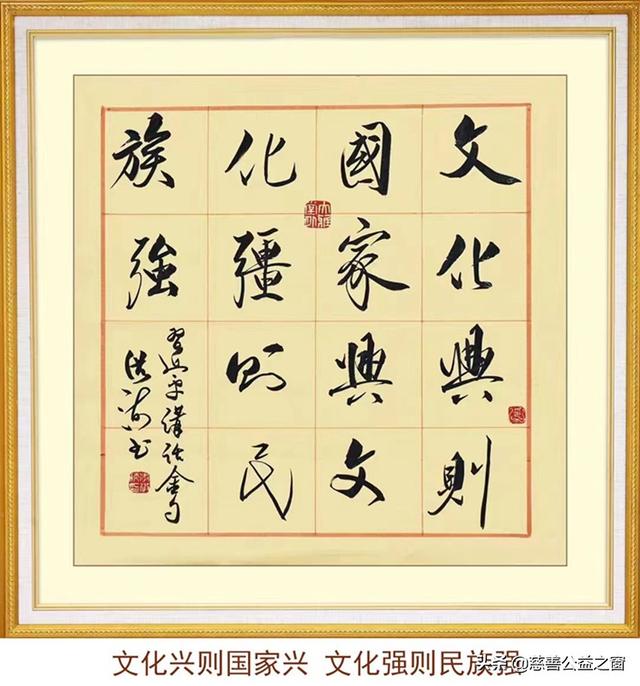 文化興則
國家興文
化彊則民
族強
習近平講話金句
文化兴则国家兴 文化强则民族强
头条@慈善公益之窗